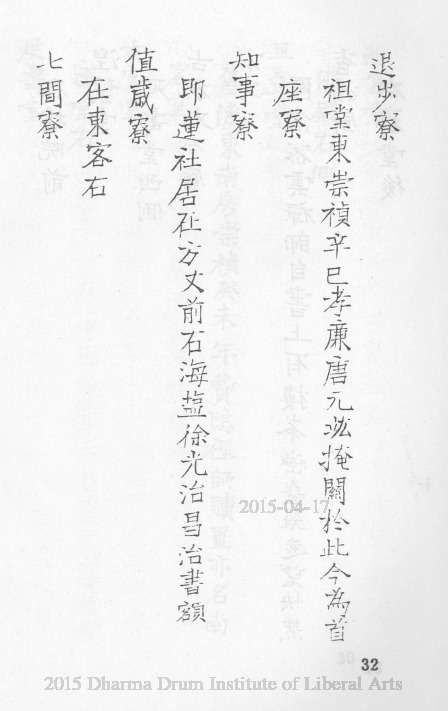 退步寮
祖堂東崇禎辛巳孝廉唐元竑掩關於此今為首
座寮
知事寮
即蓮社居址方丈前右海塩徐光治昌治書額
值歲寮
在東客右
七間寮
32
2015-04-17
2015 Dharma Drum Institute of Liberal Arts